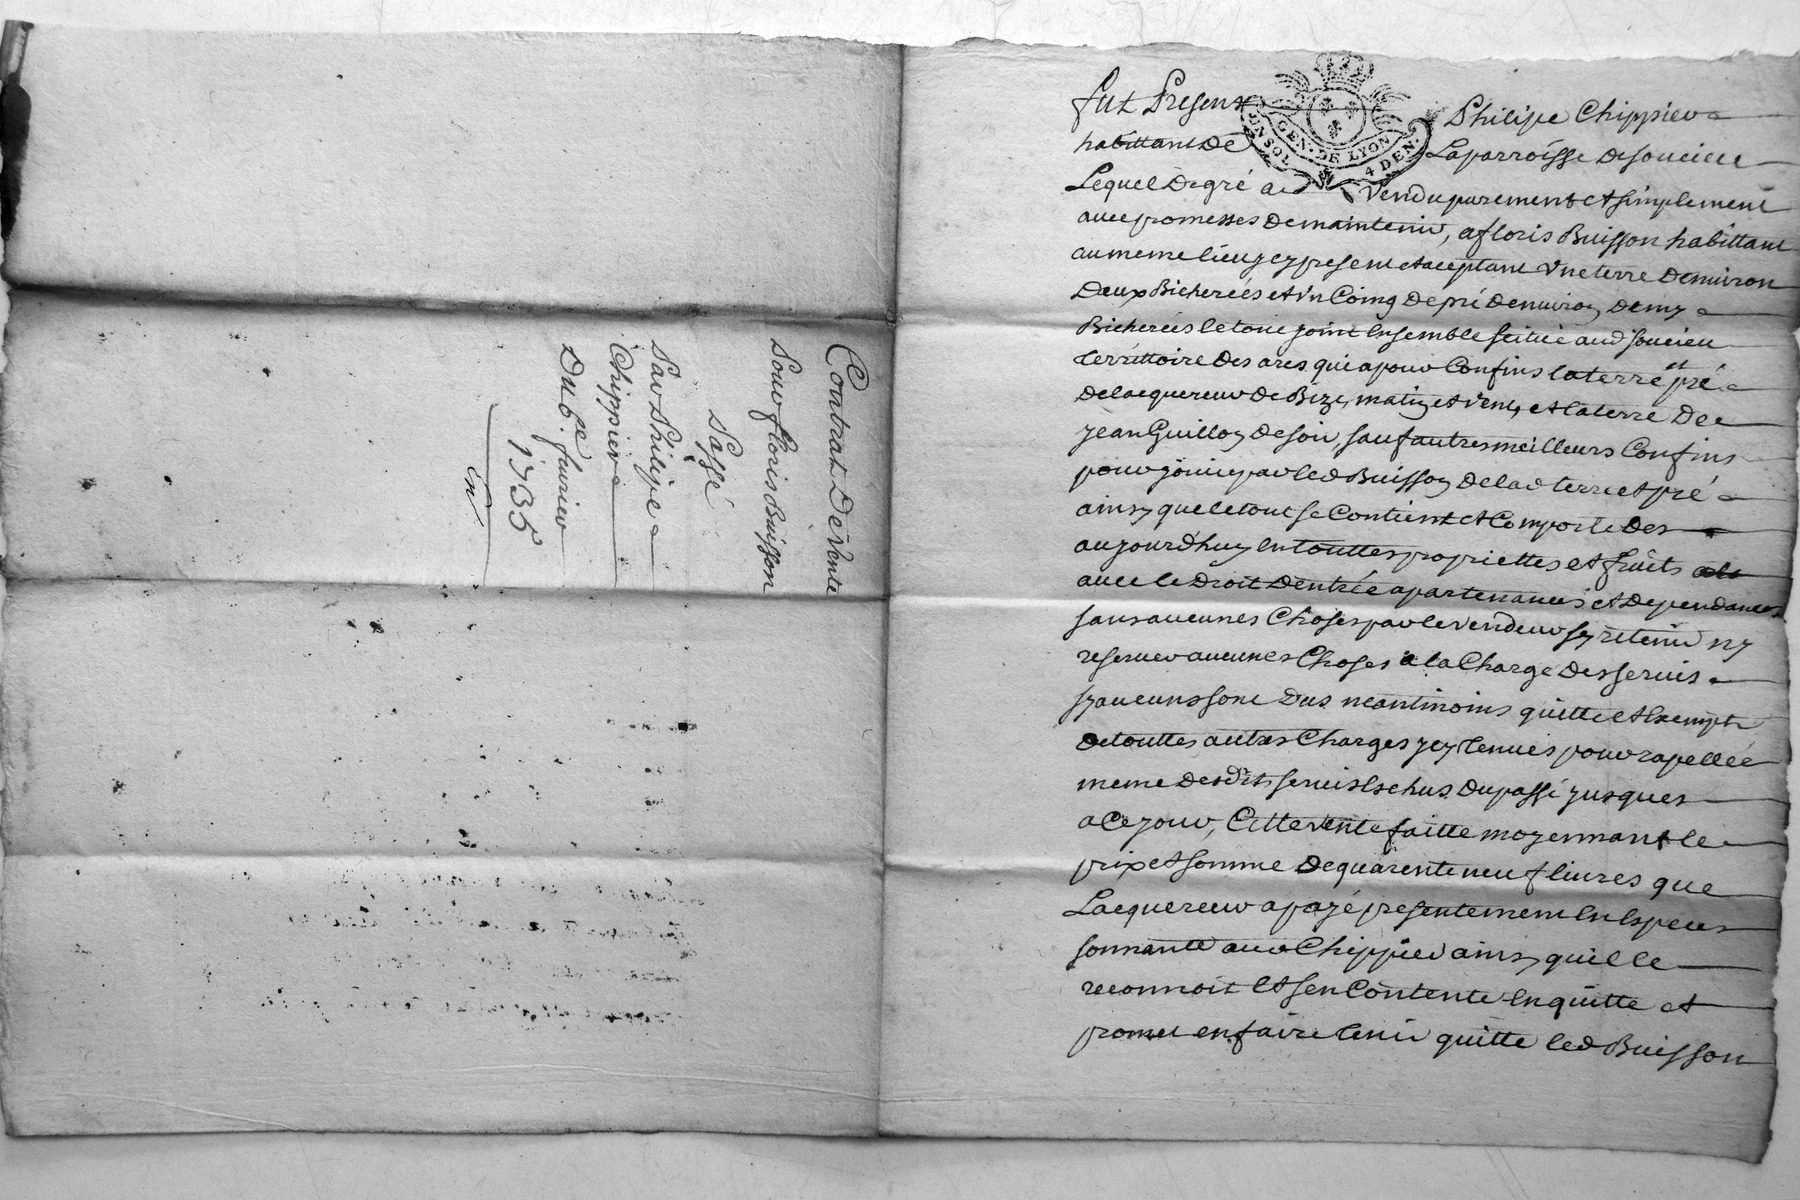 Contrat De Vente
pour floris Buisson
Passé
Par Philipe
Chippier
Du 6.e feurier
1735
GEN. DE LYON
UN SOL 4 DEN.
fut Present Philipe Chippier
habittant De Laparroisse De soucieu
Lequel De gré a Vendu purement et simplement
auec promesses De maintenir, a floris Buisson habittant
au meme lieu jcy present et aceptant Vne terre Denuiron
Deux Bicherées et Vn Coing De pré Denuiron Demy
Bicherées le tout joint Ensemble scitué aud soucieu
territtoire Des ares qui a pour Confins la terre et pré
De lacquereur De Bize, matin et Vent, et la terre De
jean Guillon De soir, sauf autres meilleurs Confins
pour jouir par led Buisson De lad terre et pré
ainsy que le tout se Contient et Comporte Des
aujourdhuy En touttes propriettes et fruits
auec le Droit Dentrée apartenances et Dependances
sans aucunes Choses par le vendeur sy retenir ny
reseruer aucunes Choses a la Charge Des seruis
sy aucuns sont Dus neantmoins quitte et Exempte
De touttes autres Charges jcy tenues pour rapellée
meme Desdits seruis Eschus Du passé jusques
a Ce jour, Cette vente faitte moyennant le
prix et somme De quarente neuf liures que
Lacquereur a payé presentement En Especes
sonnante aud Chippier ainsy quil le
reconnoit Et sen Contente En quitte et
promet en faire tenir quitte led Buisson